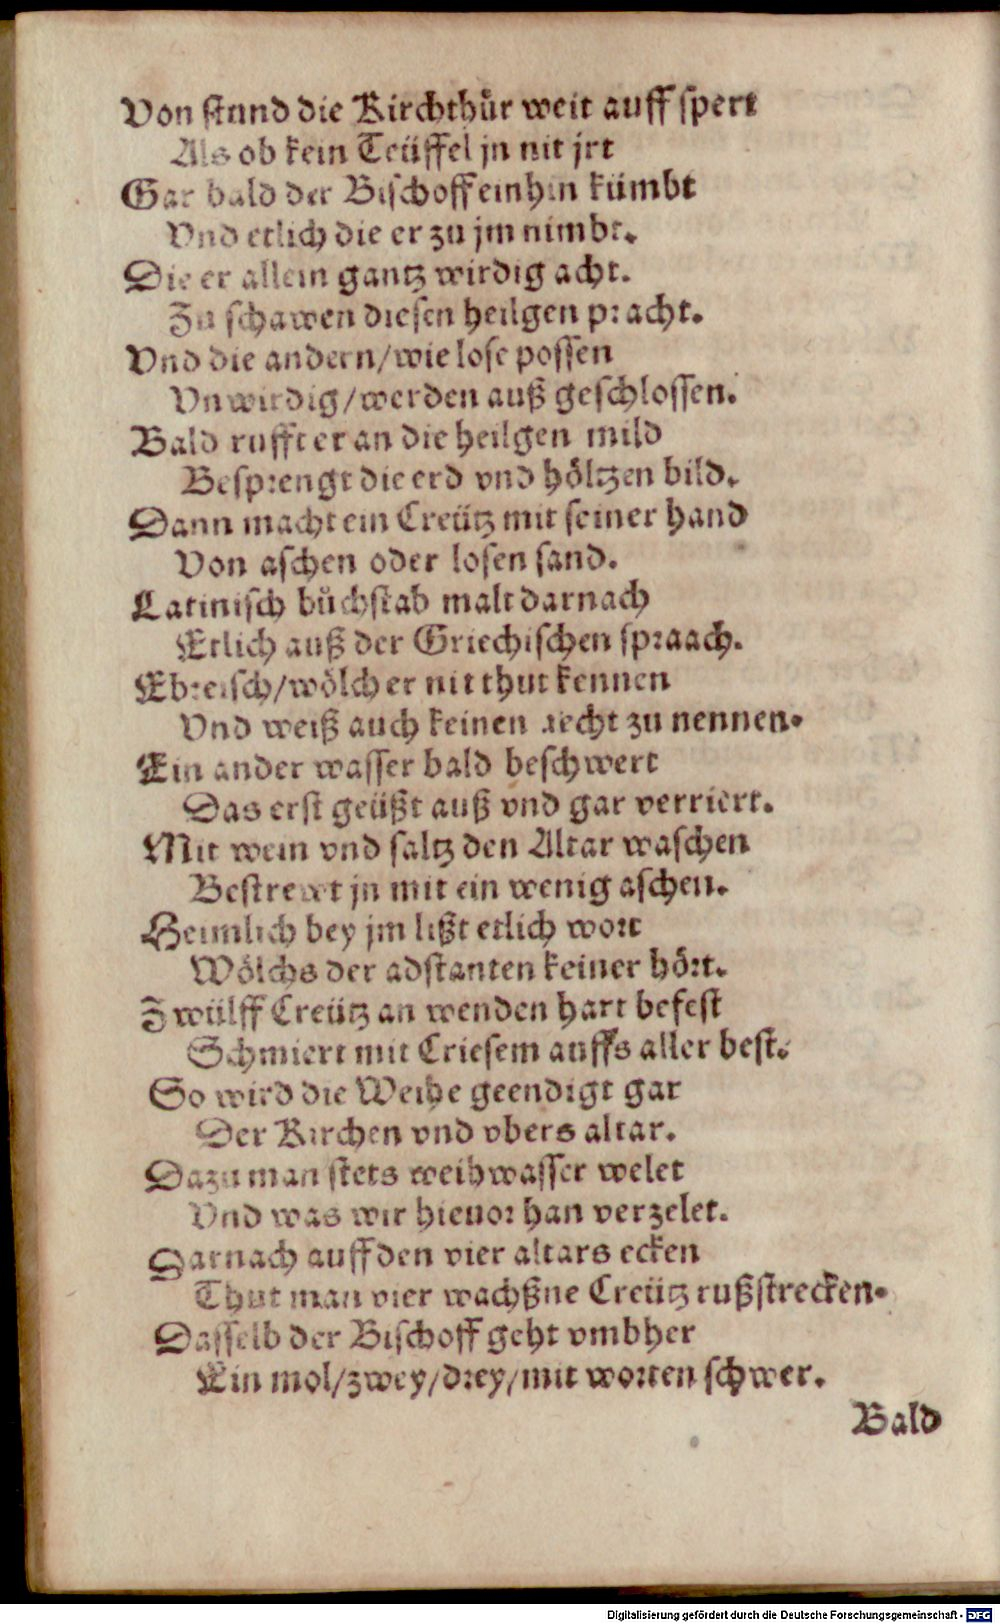 Von stund die Kirchthür weit auff spert
Als ob kein Teüffel jn nit jrt
Gar bald der Bischoff einhin kümbt
Vnd etlich die er zu jm nimbt.
Die er allein gantz wirdig acht.
Zu schawen diesen heilgen pracht.
Vnd die andern/wie lose possen
Vnwirdig/werden auß geschlossen.
Bald rufft er an die heilgen mild
Besprengt die erd vnd höltzen bild.
Dann macht ein Creütz mit seiner hand
Von aschen oder losen sand.
Latinisch bůchstab malt darnach
Etlich auß der Griechischen spraach.
Ebreisch/wölch er nit thut kennen
Vnd weiß auch keinen recht zu nennen.
Ein ander wasser bald beschwert
Das erst geüßt auß vnd gar verriert.
Mit wein vnd saltz den Altar waschen
Bestrewt jn mit ein wenig aschen.
Heimlich bey jm lißt etlich wort
Wölchs der adstanten keiner hört.
Zwülff Creütz an wenden hart befest
Schmiert mit Criesem auffs aller best.
So wird die Weihe geendigt gar
Der Kirchen vnd vbers altar.
Dazu man stets weihwasser welet
Vnd was wir hieuor han verzelet.
Darnach auff den vier altars ecken
Thut man vier wachßne Creütz rußstrecken.
Dasselb der Bischoff geht vmbher
Ein mol/zwey/drey/mit worten schwer.
Bald
Digitalisierung gefördert durch die Deutsche Forschungsgemeinschaft - DFG